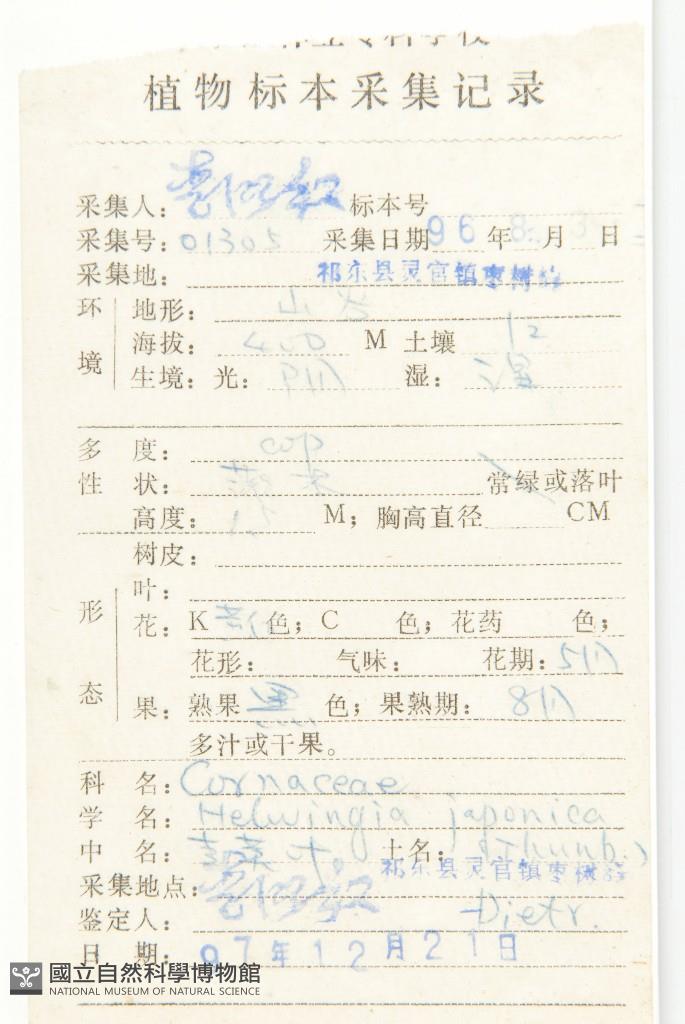 植物标本采集记录
采集人： 标本号
采集号：01305 采集日期 96 年 8 月 日
采集地： 祁东县灵官镇枣树
环境 地形： 山谷
海拔： 400 M 土壤 红
生境：光： 阴 湿： 湿
多度： cop
性状： 灌木 常绿或落叶
高度： M；胸高直径 CM
树皮：
形态 叶：
花： K 色；C 色；花药 色；
花形： 气味： 花期：5月
果： 熟果 黑 色；果熟期： 8月
多汁或干果。
科名：Cornaceae
学名：Helwingia japonica
中名： 叶 土名： (Thunb.)
祁东县灵官镇枣树
采集地点：
鉴定人： Dietr.
日期：07年12月21日
國立自然科學博物館
NATIONAL MUSEUM OF NATURAL SCIENCE